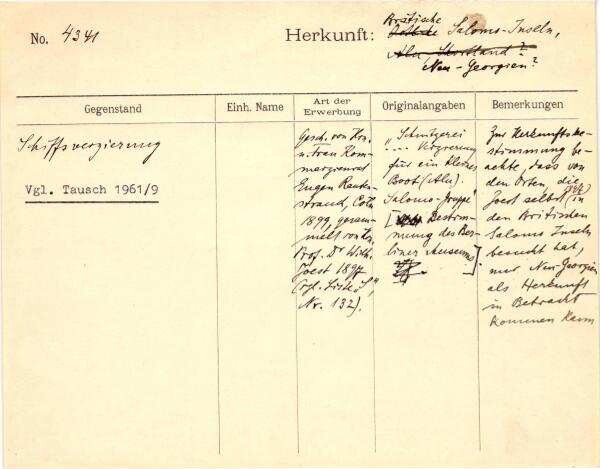 No. 4341
Herkunft:
Britische
Salomo-Inseln,
Alu Shortland?
Neu-Georgien?
Gegenstand
Einh. Name
Art der Erwerbung
Originalangaben
Bemerkungen
Schiffsverzierung
Vgl. Tausch 1961/9
Gesch. von Hrn.
u. Frau Kom-
merzienrat
Eugen Rauten-
strauch, Cöln
1899, gesam-
melt von Hrn.
Prof. Dr Wilh.
Joest 1897
(Vgl. Liste „S",
Nr. 132).
„Schnitzerei
.... Verzierung
für ein kleines
Boot (Alu)
Salomo-Gruppe"
[Bestim-
mung des Ber-
liner Museums]
Zur Herkunftsbe-
stimmung be-
achte, dass von
den Orten, die
Joest selbst (in
den Britischen
Salomo Inseln
besucht hat,
nur Neu Georgien
als Herkunft
in Betracht
kommen kann